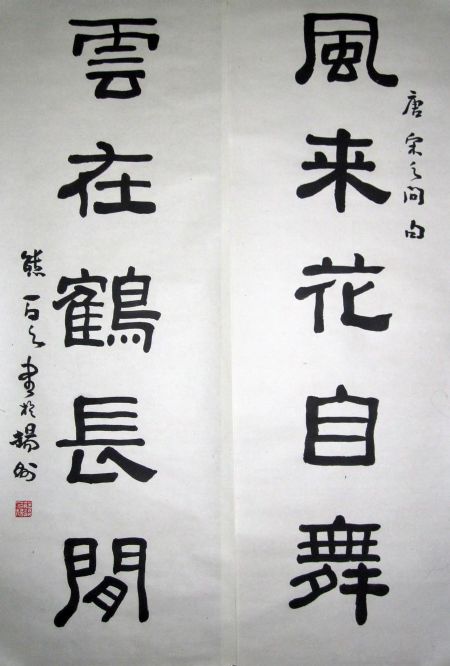 唐宋之問句
風来花自舞
雲在鶴長閒
熊百之書於揚州